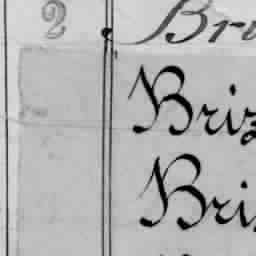 2 Bri
Briz
Bri